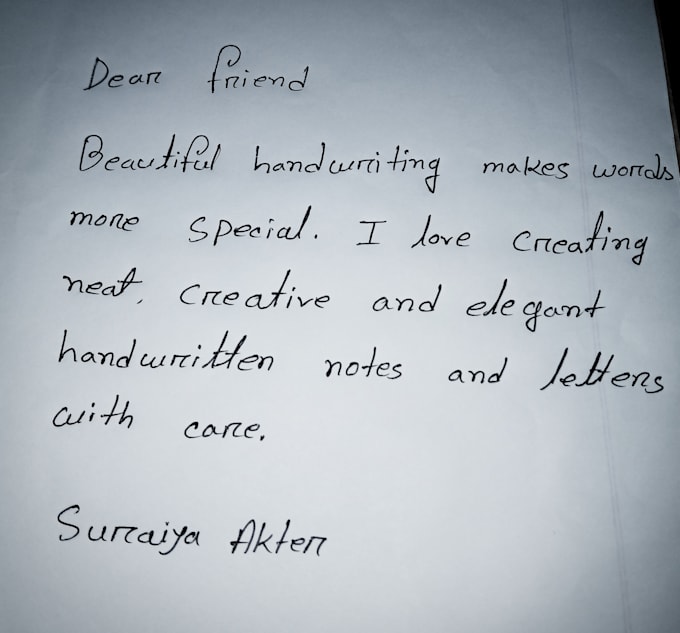 Dear friend
Beautiful handwriting makes words
more special. I love creating
neat, creative and elegant
handwritten notes and letters
with care.
Surraiya Akter